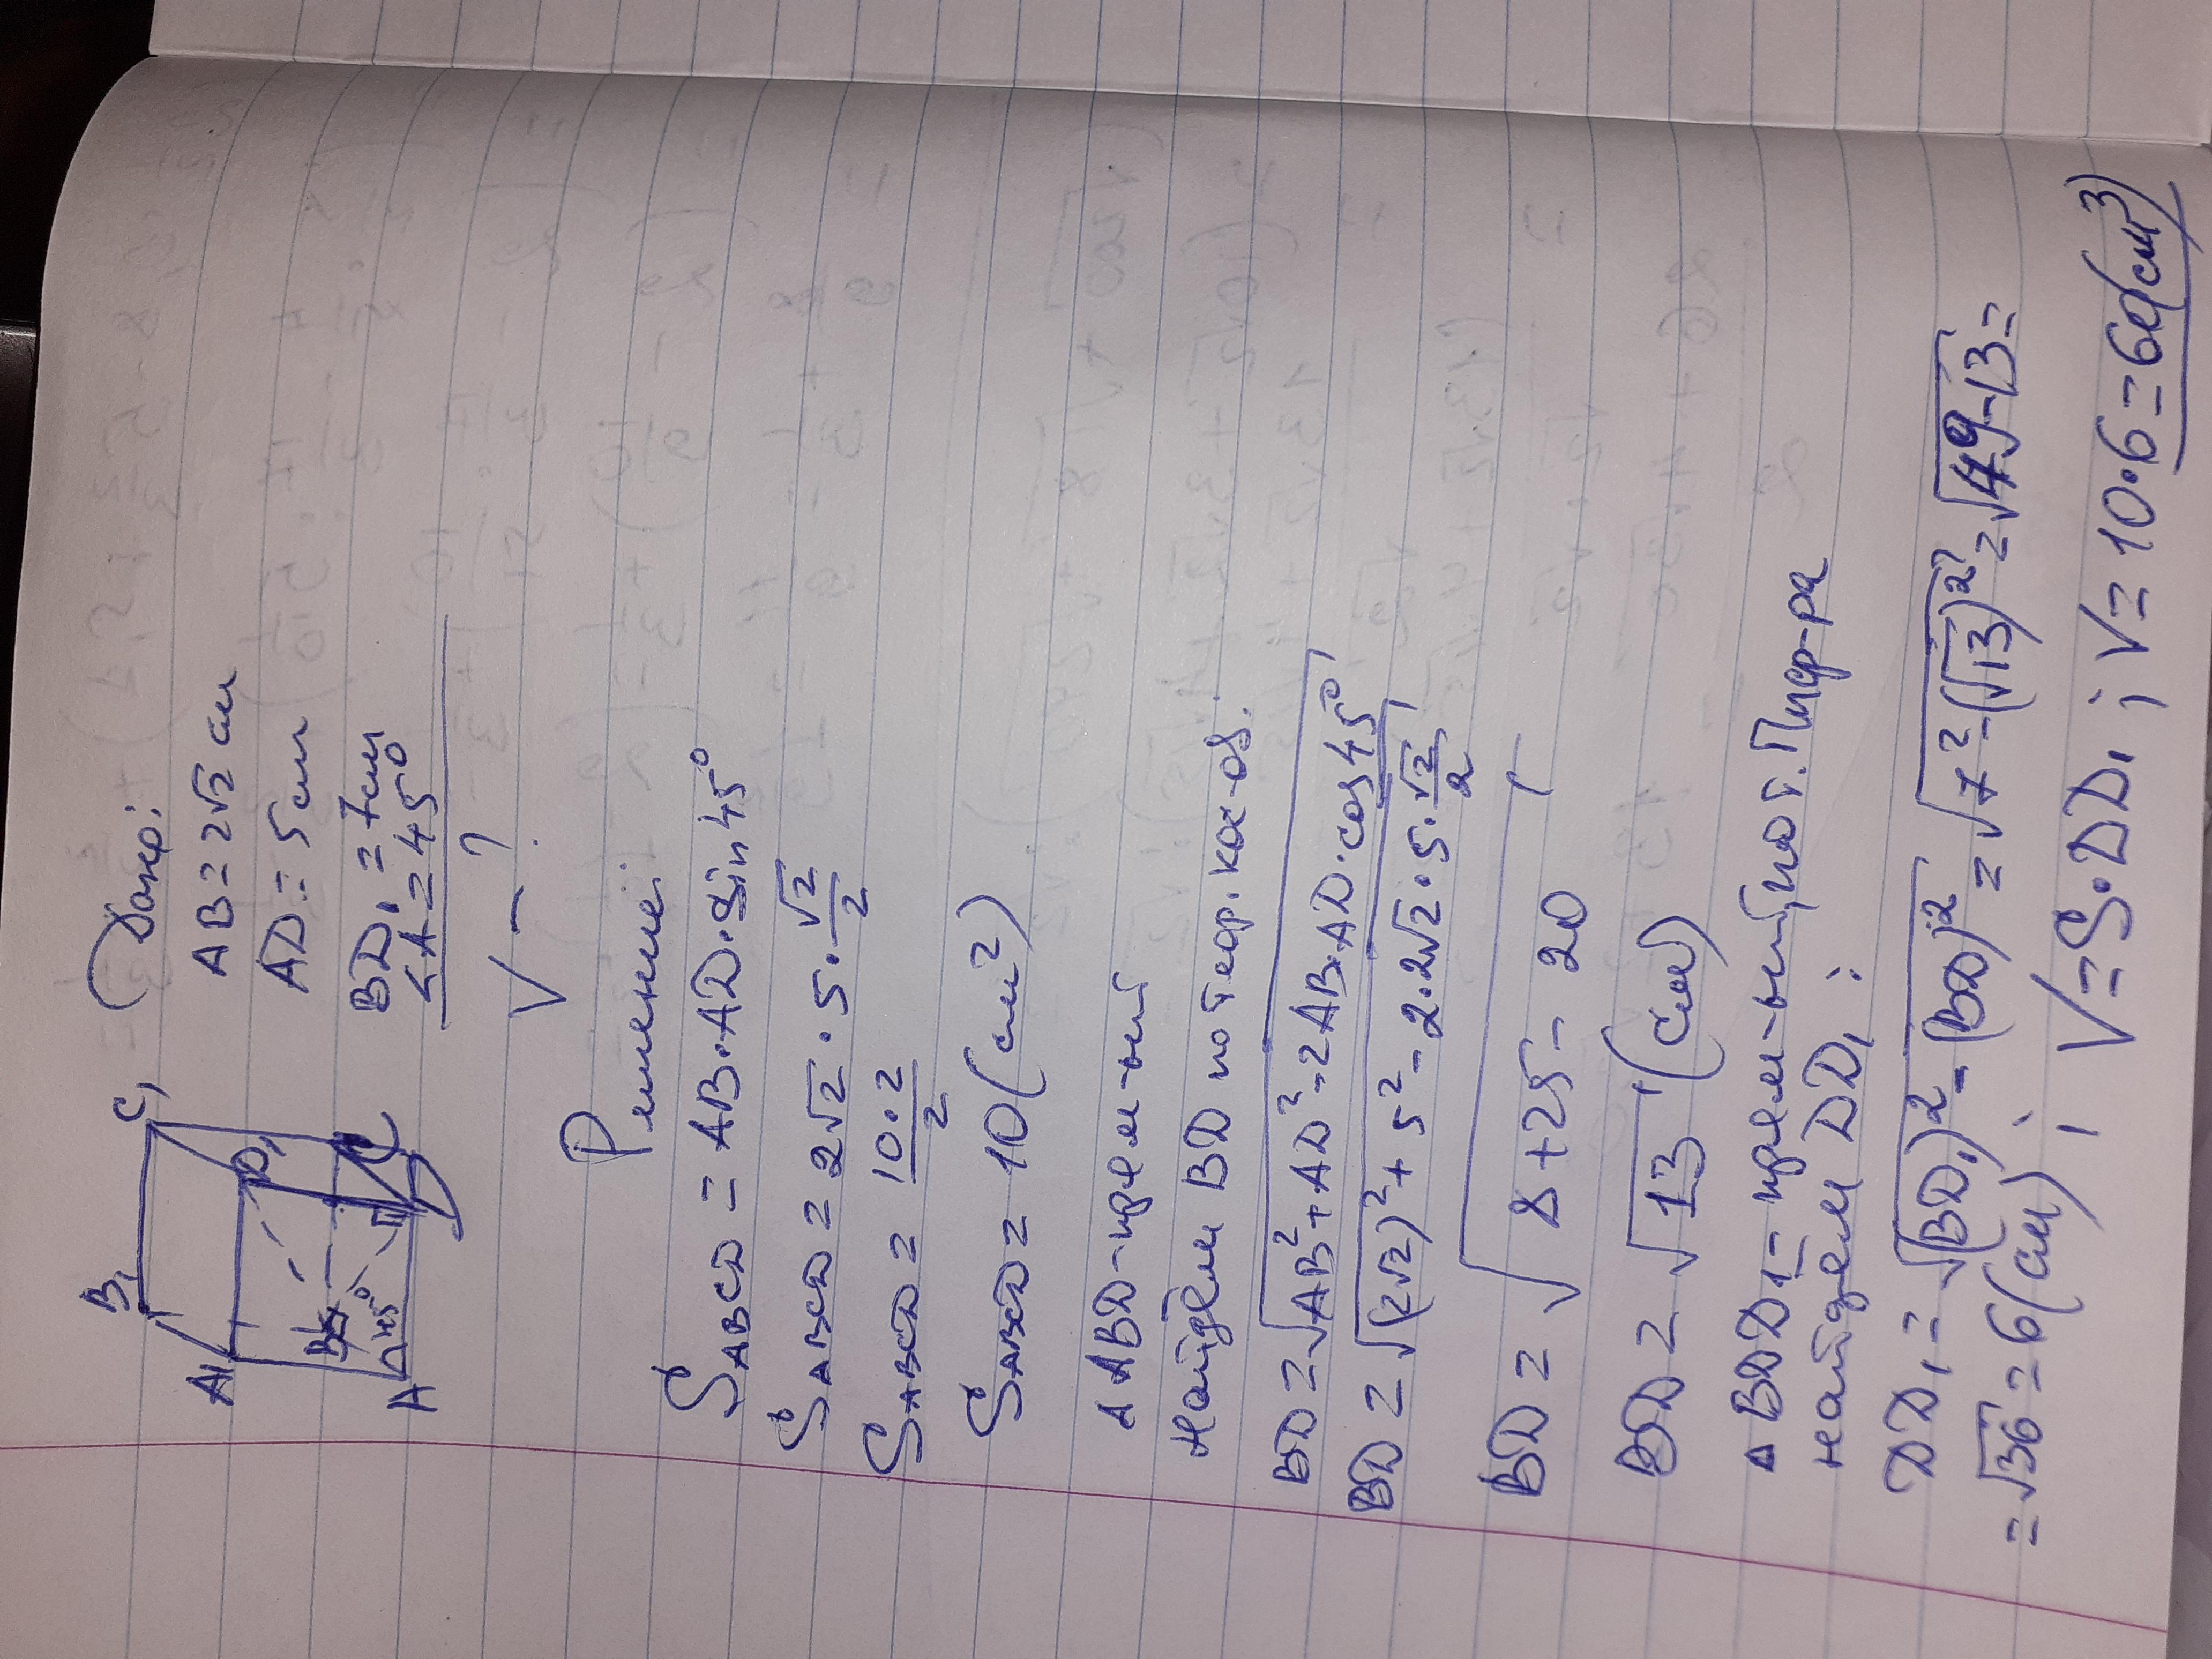 Дано:
AB = 2√2 см
AD = 5 см
BD₁ = 7см
<A = 45°
V – ?
B₁ C₁
A₁ D₁
45°
A
Решение:
SABCD = AB·AD·sin 45°
SABCD = 2√2 · 5 · √2/2
SABCD = 10·2/2
SABCD = 10 (см²)
Δ ABD – прям-ый
Найдём BD по теор. кос-ов:
BD = √AB² + AD² - 2AB·AD·cos 45°
BD = √(2√2)² + 5² - 2·2√2·5·√2/2
BD = √8 + 25 - 20
BD = √13 (см)
Δ BDD₁ – прям-ый, по т. Пиф-ра
найдём DD₁ :
DD₁ = √(BD₁)² - (BD)² = √7² - (√13)² = √49-13 =
= √36 = 6 (см) ; V = S·DD₁ ; V = 10·6 = 60(см³)